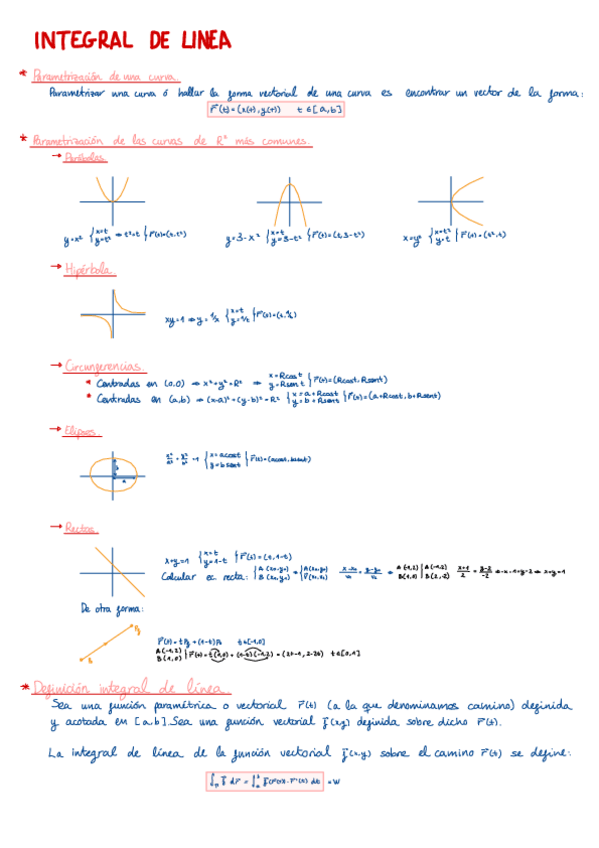 INTEGRAL DE LINEA
* Parametrización de una curva.
Parametrizar una curva ó hallar la forma vectorial de una curva es encontrar un vector de la forma:
r⃗(t) = (x(t), y(t)) t ∈ [a, b]
* Parametrización de las curvas de R² más comunes.
→ Parábolas.
y=x² { x=t y=t² ⇒ t²=t } r⃗(t)=(t, t²)
y=3-x² { x=t y=3-t² } r⃗(t)=(t, 3-t²)
x=y² { x=t² y=t } r⃗(t)=(t², t)
→ Hipérbola.
xy=1 ⇒ y=1/x { x=t y=1/t } r⃗(t)=(t, 1/t)
→ Circunferencias.
* Centradas en (0,0) ⇒ x²+y²=R² ⇒ x=Rcost y=Rsent } r⃗(t)=(Rcost, Rsent)
* Centradas en (a,b) ⇒ (x-a)²+(y-b)²=R² { x=a+Rcost y=b+Rsent } r⃗(t)=(a+Rcost, b+Rsent)
→ Elipses.
x²/a² + y²/b² =1 { x=acost y=bsent } r⃗(t)=(acost, bsent)
→ Rectas.
x+y=1 { x=t y=1-t } r⃗(t)=(t, 1-t)
Calcular ec. recta:
De otra forma:
r⃗(t) = tP₂ + (1-t)P₁ t∈[0,1]
A(-1,2) B(1,0) } r⃗(t) = t(1,0) + (1-t)(-1,2) = (2t-1, 2-2t) t∈[0,1]
* Definición integral de línea.
Sea una función paramétrica o vectorial r⃗(t) (a la que denominamos camino) definida
y acotada en [a,b]. Sea una función vectorial f⃗(x,y) definida sobre dicho r⃗(t).
La integral de línea de la función vectorial f⃗(x,y) sobre el camino r⃗(t) se define:
= W